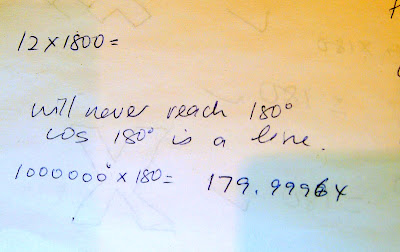 12 x 1800 =
will never reach 180°
cos 180° is a line.
1000000° x 180 = 179.99964